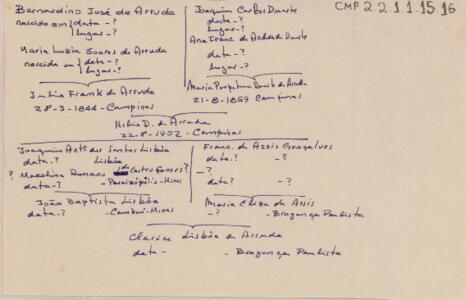 CMP 2.2.11.15.16
Bernardino José de Arruda
nascido em { data - ?
lugar - ?
Maria Luzia Soares de Arruda
nascida em { data - ?
lugar - ?
Joaquim Carlos Duarte
data - ?
lugar - ?
Ana Franc. de Andrade Duarte
data - ?
lugar - ?
Julio Frank de Arruda
28-3-1844 - Campinas
Maria Perpetua Duarte de Arruda
21-8-1859 Campinas
D. de Arruda
22-8-1902 - Campinas
Joaquim Antº dos Santos Lisbôa
data - ? Lisbôa
? Marcolina Romano de Castro Gomes ?
data - ? - Paraizópolis - Minas
Franc. de Assis Gonçalves
data ? - ?
- ?
data ? - ?
João Baptista Lisbôa
data - ? - Cambuí - Minas
Maria Eliza de Assis
- ? - Bragança Paulista
Clarice Lisbôa de Arruda
data - - Bragança Paulista